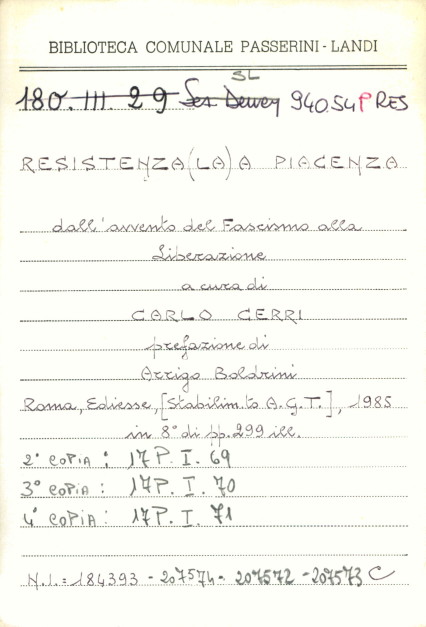 BIBLIOTECA COMUNALE PASSERINI-LANDI
SL
180.III.29 Ses Dewey 940.54 P RES
RESISTENZA (LA) A PIACENZA
dall'avvento del Fascismo alla
Liberazione
a cura di
CARLO CERRI
prefazione di
Arrigo Boldrini
Roma, Ediesse, [Stabilim.to A.G.T.], 1985
in 8° di pp. 299 ill.
2° COPIA: 17 P. I. 69
3° COPIA: 17 P. I. 70
4° COPIA: 17 P. I. 71
N.I.: 184393 - 207574 - 207572 - 207573 C